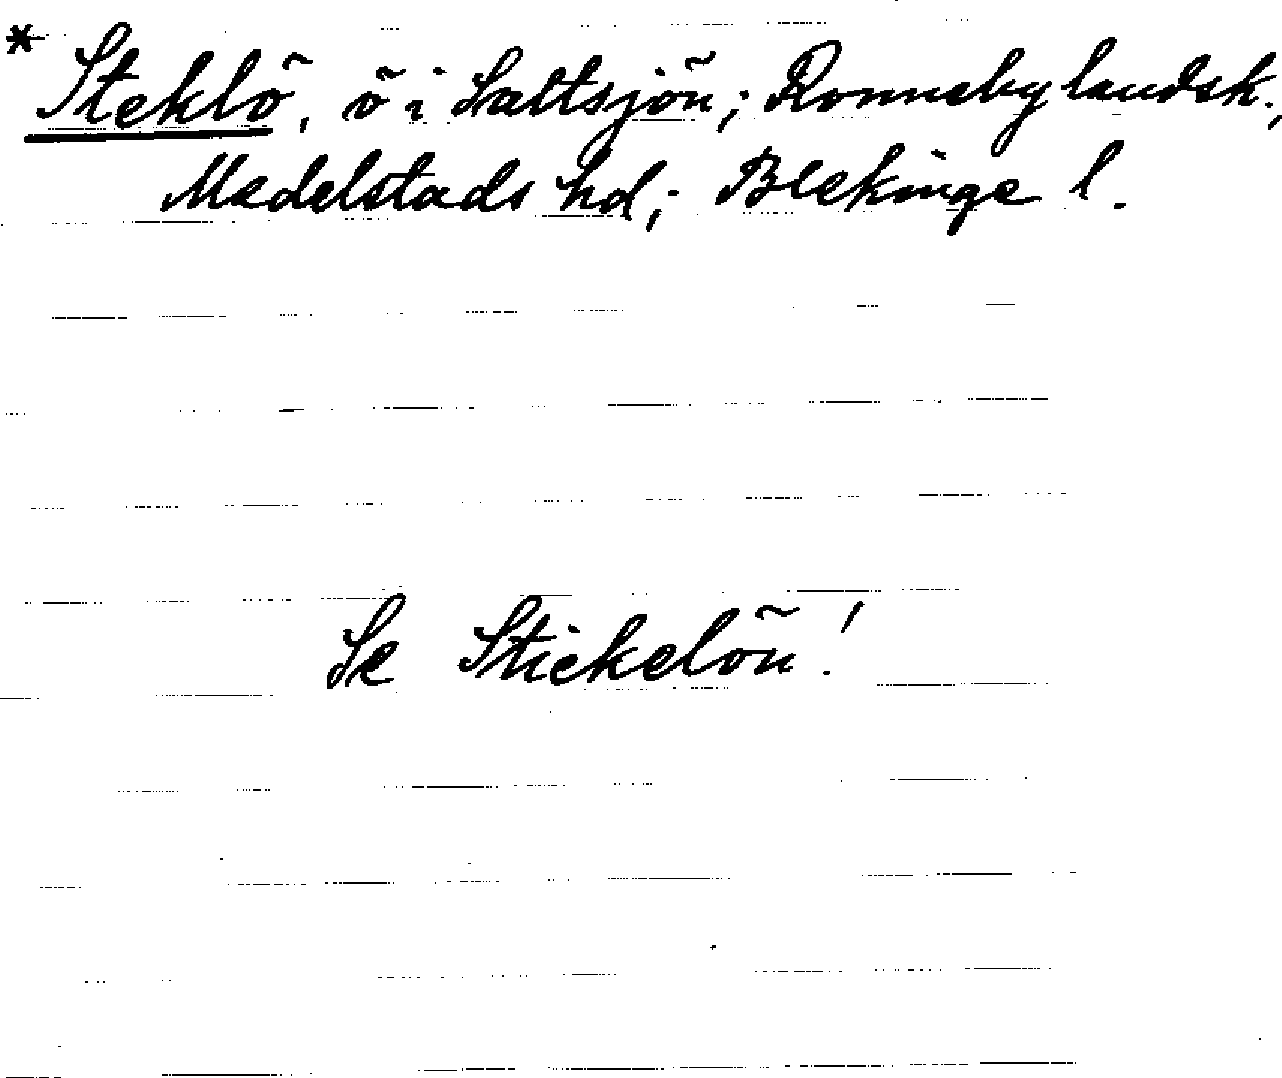 * Steklö, ö i Saltsjön; Ronneby landsk.,
Medelstads hd; Blekinge l.
Se Stickelön!